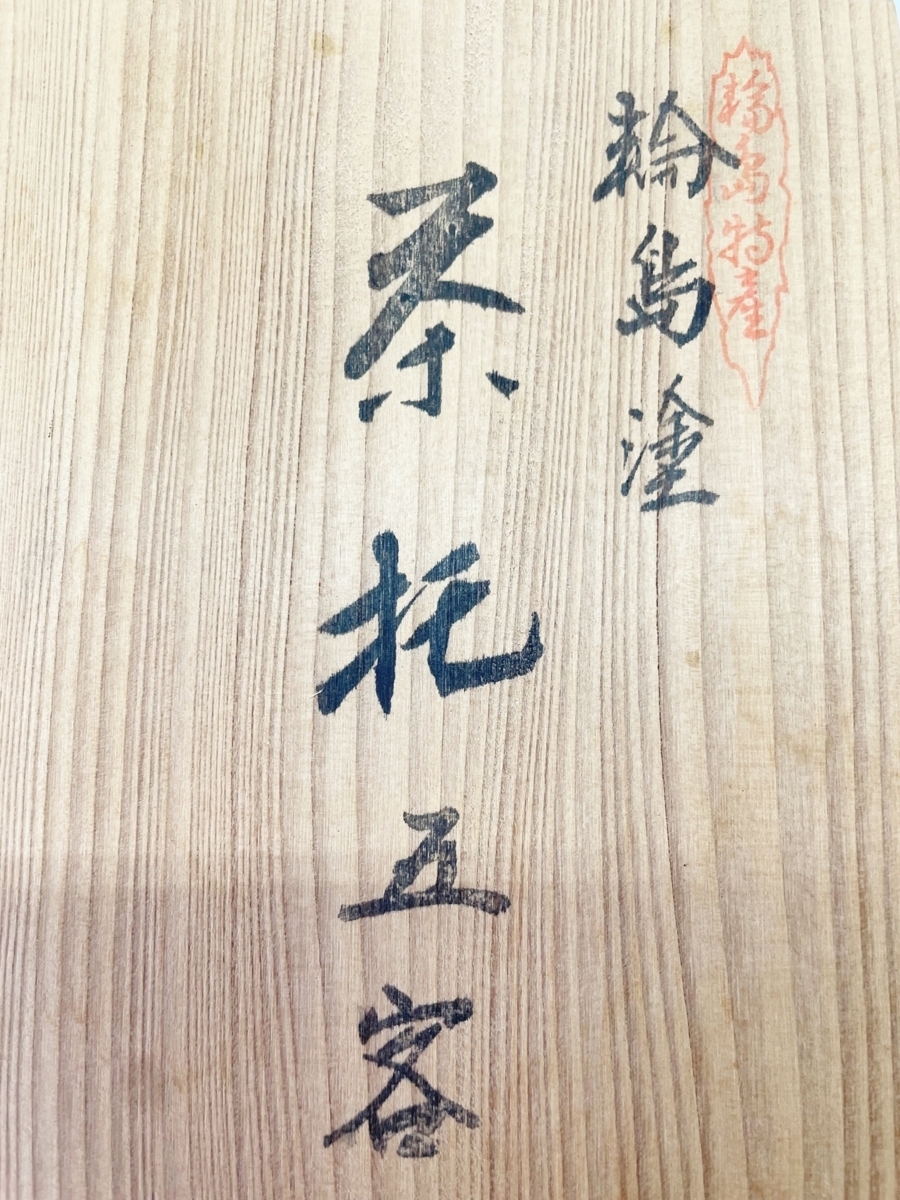 輪島特産
輪島塗
茶托五客